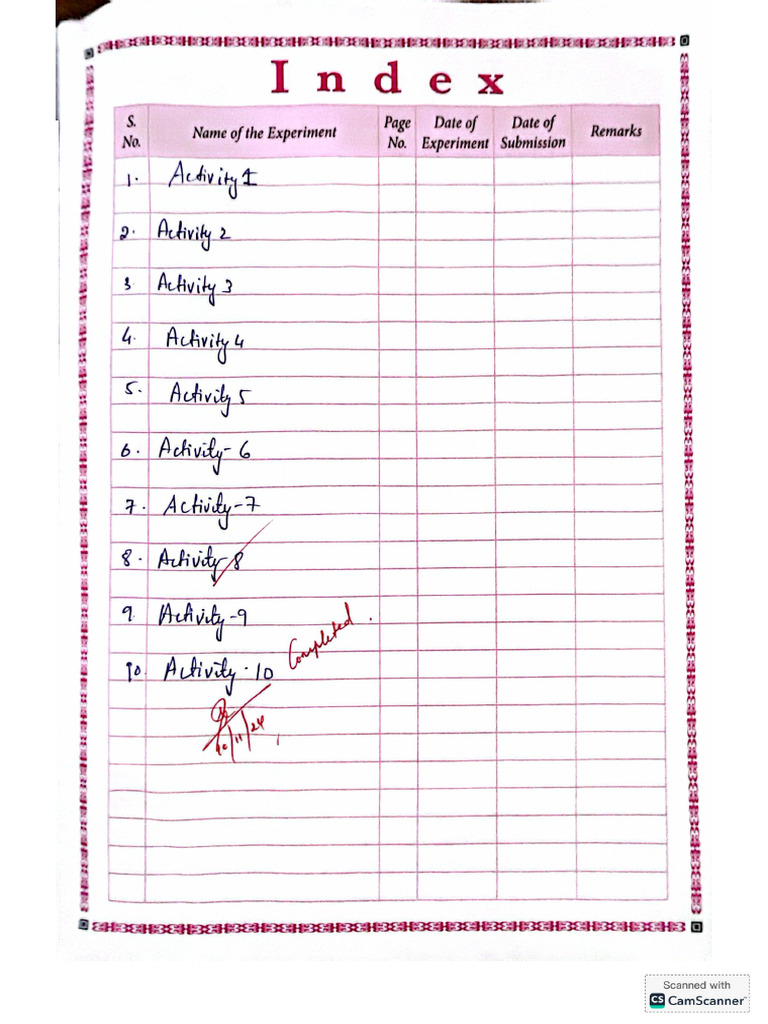 Index
S. No. Name of the Experiment Page No. Date of Experiment Date of Submission Remarks
1. Activity 1
2. Activity 2
3 Activity 3
4. Activity 4
5. Activity 5
6. Activity-6
7. Activity-7
8. Activity-8
9. Activity-9
10. Activity-10
Completed.
/11/24
Scanned with
CS CamScanner